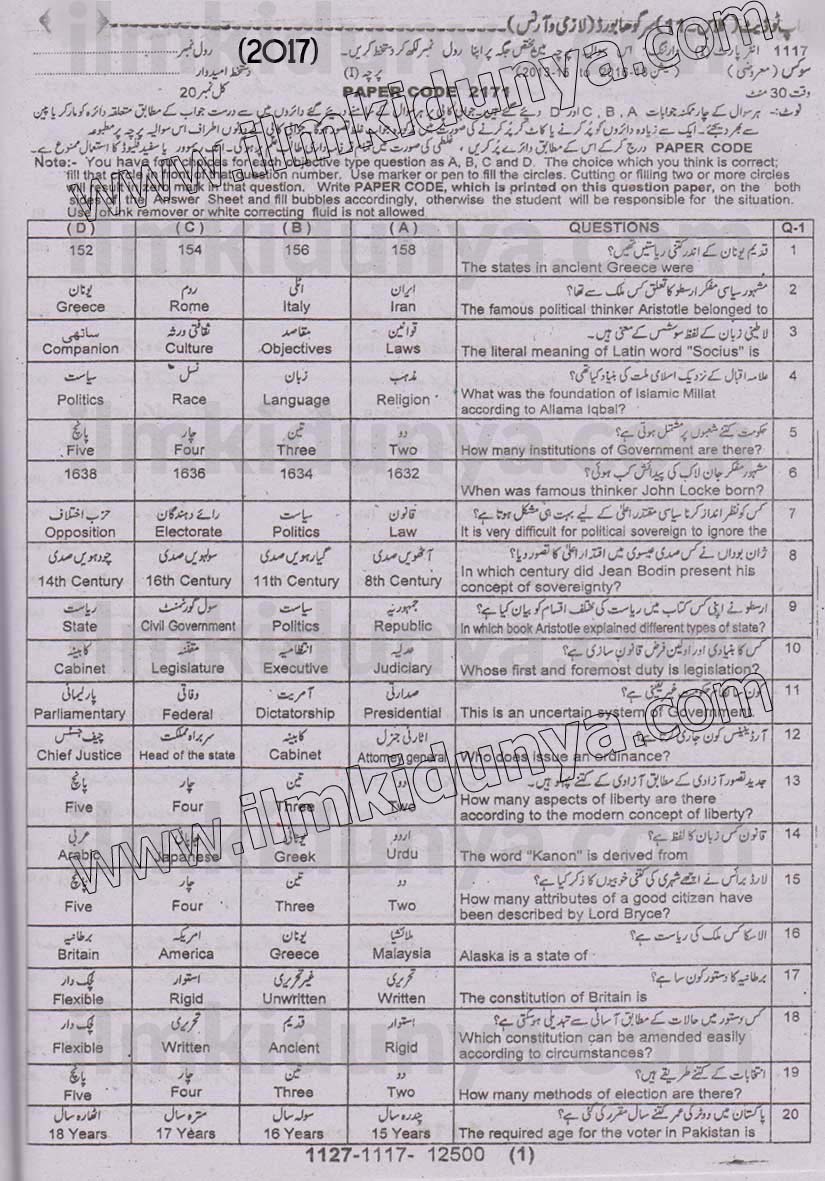 (2017)
1117
رول نمبر
سوکس (معروضی)
پرچہ (I)
دستخط امیدوار
وقت 30 منٹ
PAPER CODE 2171
کل نمبر 20
Note:- You have four choices for each objective type question as A, B, C and D. The choice which you think is correct;
fill that circle in front of that question number. Use marker or pen to fill the circles. Cutting or filling two or more circles
will result in zero mark in that question. Write PAPER CODE, which is printed on this question paper, on the both
sides of the Answer Sheet and fill bubbles accordingly, otherwise the student will be responsible for the situation.
Use of ink remover or white correcting fluid is not allowed
(D) (C) (B) (A) QUESTIONS Q-1
قدیم یونان کے اندر کتنی ریاستیں تھیں؟ 1
152 154 156 158 The states in ancient Greece were
یونان روم اٹلی ایران مشہور سیاسی مفکر ارسطو کا تعلق کس ملک سے تھا؟ 2
Greece Rome Italy Iran The famous political thinker Aristotle belonged to
ساتھی ثقافتی ورثہ مقاصد قوانین لاطینی زبان کے لفظ سوشس کے معنی ہیں۔ 3
Companion Culture Objectives Laws The literal meaning of Latin word "Socius" is
سیاست نسل زبان مذہب علامہ اقبال کے نزدیک اسلامی ملت کی بنیاد کیا تھی؟ 4
Politics Race Language Religion What was the foundation of Islamic Millat
according to Allama Iqbal?
پانچ چار تین دو حکومت کتنے شعبوں پر مشتمل ہوتی ہے؟ 5
Five Four Three Two How many institutions of Government are there?
مشہور مفکر جان لاک کی پیدائش کب ہوئی؟ 6
1638 1636 1634 1632 When was famous thinker John Locke born?
حزب اختلاف رائے دہندگان سیاست قانون کس کو نظر انداز کرنا سیاسی مقتدر اعلیٰ کے لیے بہت ہی مشکل ہوتا ہے؟ 7
Opposition Electorate Politics Law It is very difficult for political sovereign to ignore the
چودہویں صدی سولہویں صدی گیارہویں صدی آٹھویں صدی ژان بوداں نے کس صدی عیسوی میں اقتدار اعلیٰ کا تصور دیا؟ 8
14th Century 16th Century 11th Century 8th Century In which century did Jean Bodin present his
concept of sovereignty?
ریاست سول گورنمنٹ سیاست جمہوریہ ارسطو نے اپنی کس کتاب میں ریاست کی مختلف اقسام کو بیان کیا ہے؟ 9
State Civil Government Politics Republic In which book Aristotle explained different types of state?
کابینہ مقننہ انتظامیہ عدلیہ کس کا بنیادی اور اولین فرض قانون سازی ہے؟ 10
Cabinet Legislature Executive Judiciary Whose first and foremost duty is legislation?
پارلیمانی وفاقی آمریت صدارتی 11
Parliamentary Federal Dictatorship Presidential This is an uncertain system of Government
چیف جسٹس سربراہ مملکت کابینہ اٹارنی جنرل آرڈیننس کون جاری ہے؟ 12
Chief Justice Head of the state Cabinet Attorney general Who does issue an ordinance?
پانچ چار تین دو جدید تصور آزادی کے مطابق آزادی کے کتنے پہلو ہیں۔ 13
Five Four Three Two How many aspects of liberty are there
according to the modern concept of liberty?
عربی اردو قانون کس زبان کا لفظ ہے؟ 14
Arabic Japanese Greek Urdu The word "Kanon" is derived from
پانچ چار تین دو لارڈ برائس نے اچھے شہری کی کتنی خوبیوں کا ذکر کیا ہے؟ 15
Five Four Three Two How many attributes of a good citizen have
been described by Lord Bryce?
برطانیہ امریکہ یونان ملائشیا الاسکا کس ملک کی ریاست ہے؟ 16
Britain America Greece Malaysia Alaska is a state of
لچک دار استوار غیر تحریری تحریری برطانیہ کا دستور کون سا ہے؟ 17
Flexible Rigid Unwritten Written The constitution of Britain is
لچک دار تحریری قدیم استوار کس دستور میں حالات کے مطابق آسانی سے تبدیلی ہو سکتی ہے؟ 18
Flexible Written Ancient Rigid Which constitution can be amended easily
according to circumstances?
پانچ چار تین دو انتخابات کے کتنے طریقے ہیں؟ 19
Five Four Three Two How many methods of election are there?
اٹھارہ سال سترہ سال سولہ سال پندرہ سال پاکستان میں ووٹر کی عمر کتنے سال مقرر کی گئی ہے؟ 20
18 Years 17 Years 16 Years 15 Years The required age for the voter in Pakistan is
1127-1117- 12500 (1)
www.ilmkidunya.com
www.ilmkidunya.com